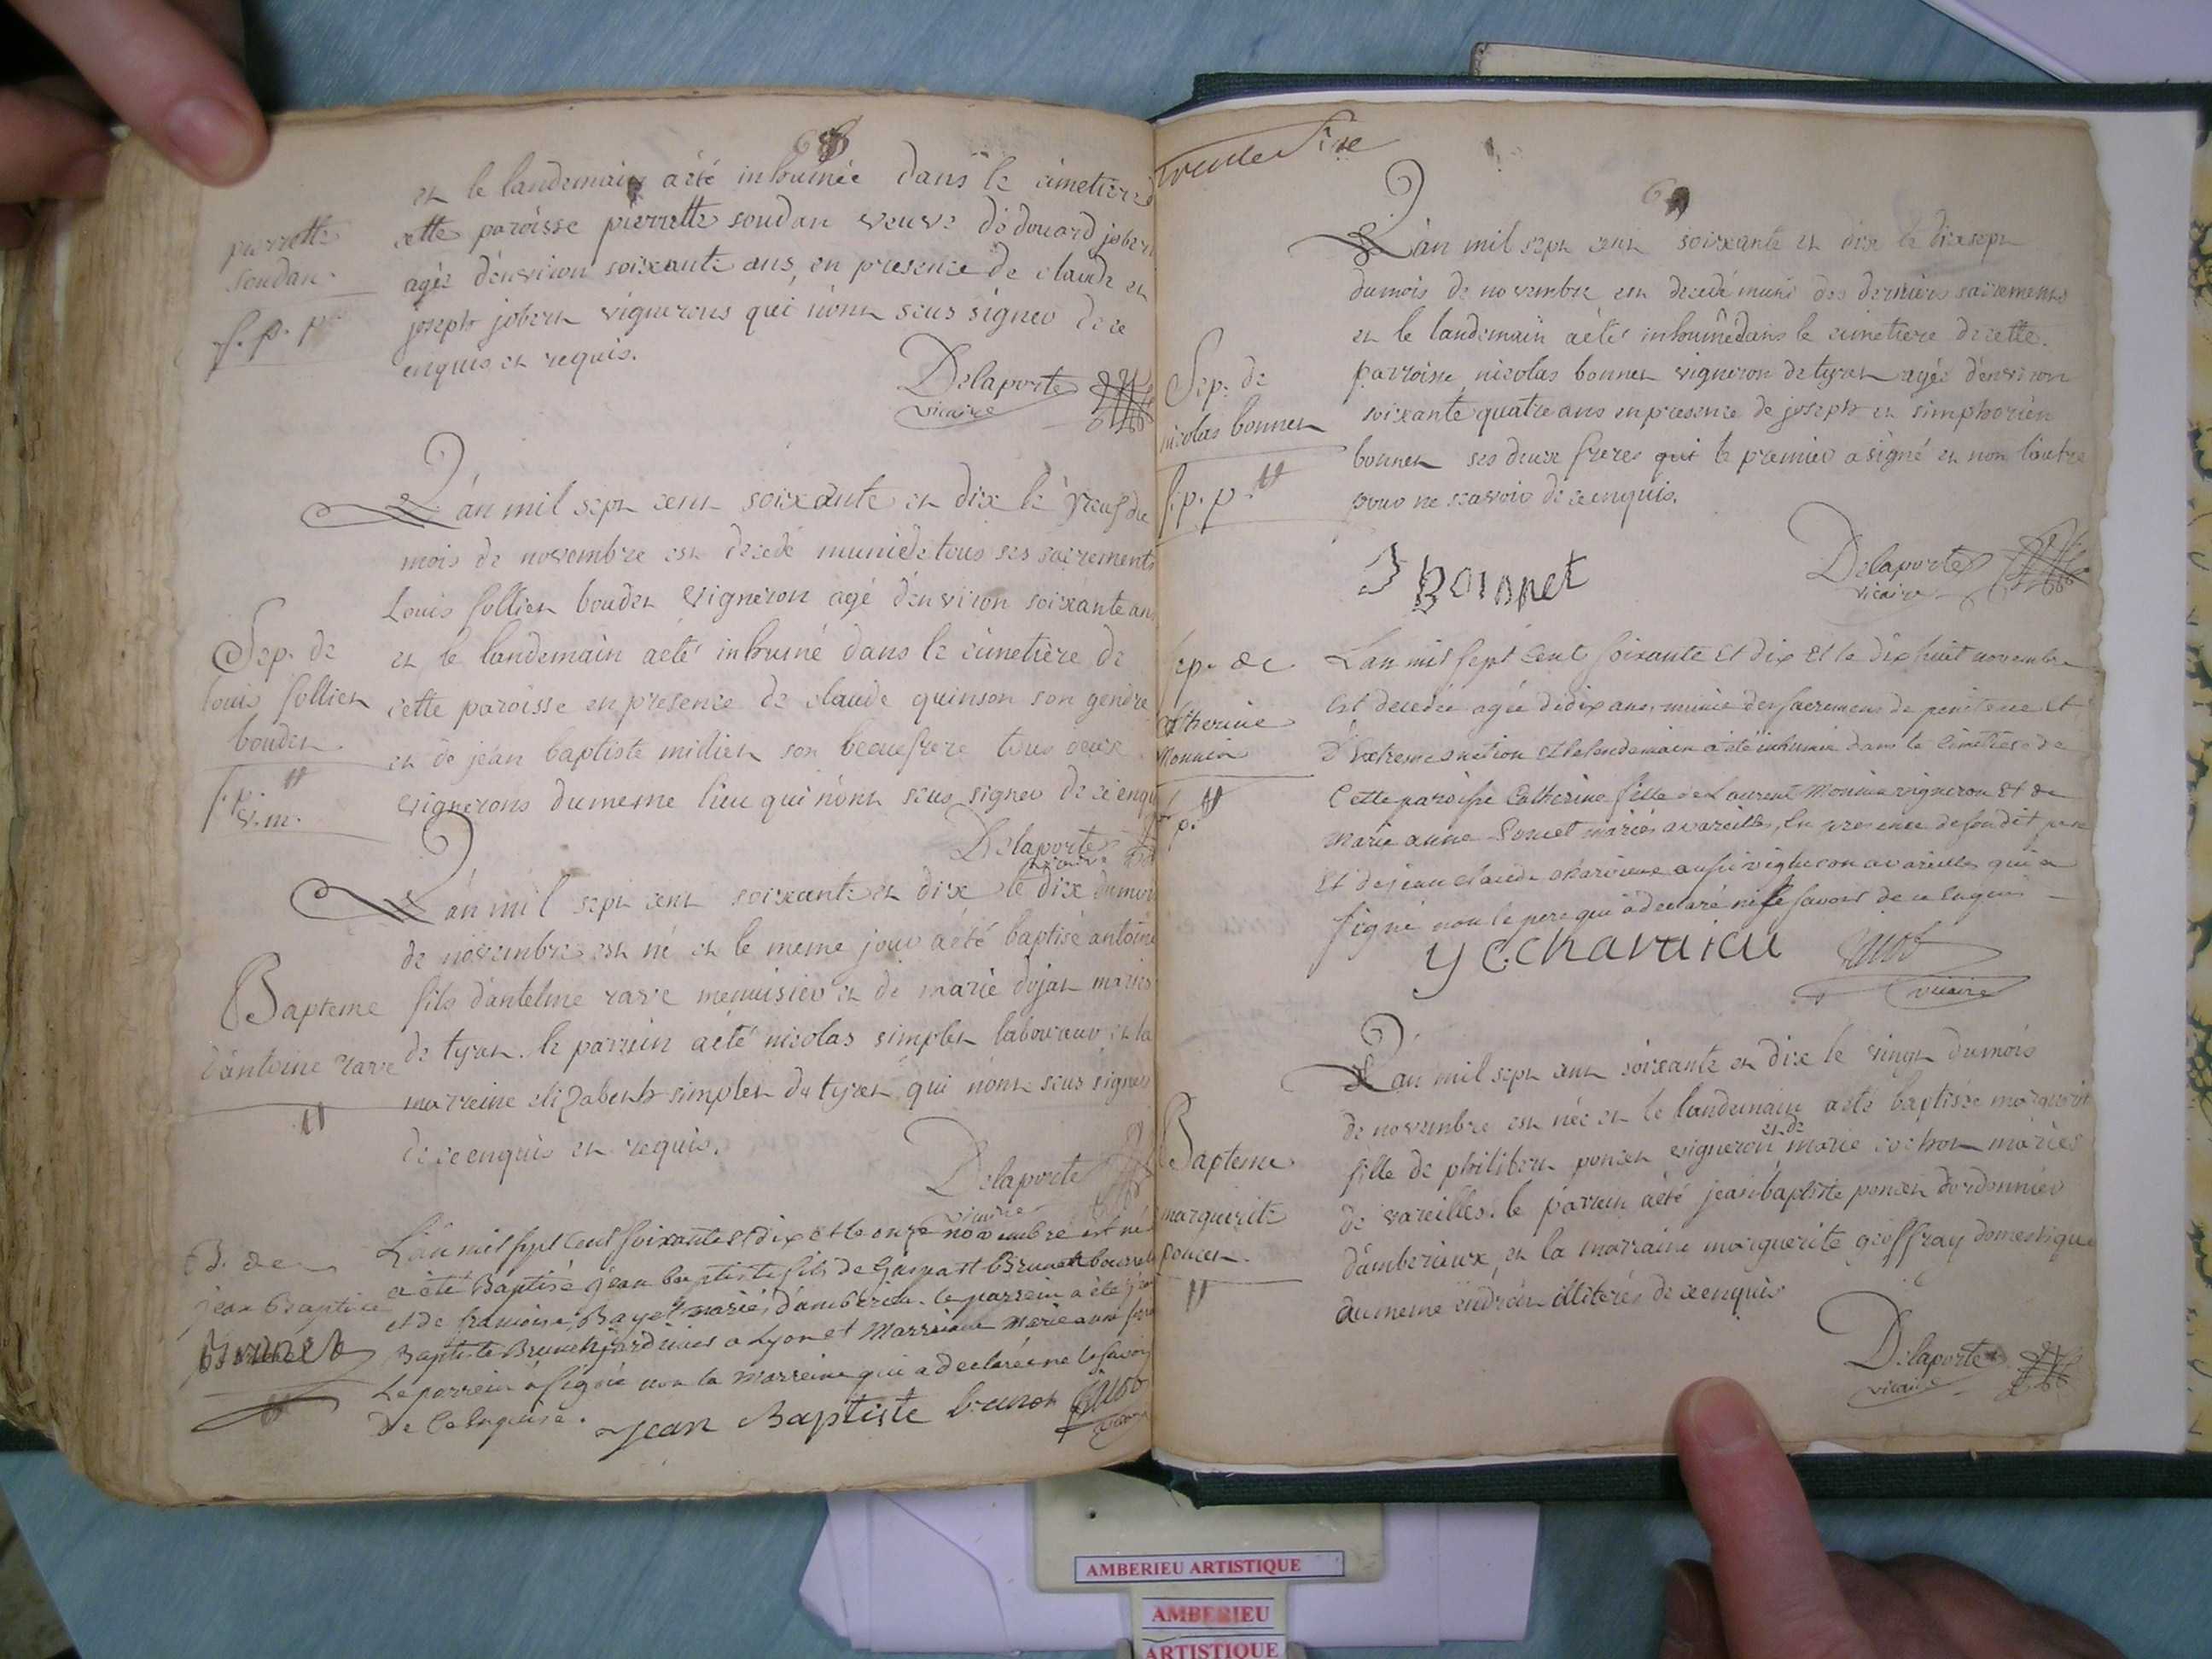 68
et le landemain a été inhumée dans le cimetiere
cette paroisse pierrette soudan veuve dédouard jobert
agée dénviron soixante ans, en presence de claude et
joseph jobert vignerons qui nónt sçus signer de ce
enquis et requis.
pierrette
soudan.
f. p. p
Delaporte
vicaire
L'án mil sept cent soixante et dix le neuf du
mois de novembre est decedé muni de tous ses sacrements
Louis sollien bouder vigneron agé dénviron soixante ans
et le landemain a eté inhumé dans le cimetière de
cette paroisse en presence de claude quinson son gendre
et de jean baptiste milliet son beaufrere tous deux
vignerons du meme lieu qui nónt sçus signer de ce enquis
Sep. de
louis sollien
bouder
Delaporte
vicaire
L'án mil sept cent soixante et dix le dix du mois
de novembre est né et le meme jour a été baptisé antoine
fils dántelme rave menuisier et de marie dujat mariés
de tyret. le parrein a été nicolas simplet laboureur et la
marreine elizabeth simplet de tyret, qui nónt sçus signer
de ce enquis et requis.
Bapteme
dántoine rave
Delaporte
vicaire
L'an mil sept cent soixante et dix et le onze novembre est né
a été Baptisé jean baptiste fils de Gaspart Brunet
et de francoise Bayet mariés d'amberieu. le parrein a été jean
Baptiste Brunet jardinier a Lyon et Marreine Marie anne
Le parrein a signé non la marreine qui a declaré ne le savoir
de ce enquise.
B. de
jean Baptiste
Brunet
jean Baptiste brunet
trente sixe
69
L'án mil sept cent soixante et dix le dixsept
du mois de novembre est decedé muni des derniers sacrements
et le landemain a eté inhumé dans le cimetiere de cette
parroisse nicolas bonnet vigneron de tyret agée dénviron
soixante quatre ans en presence de joseph et simphorien
bonnet ses deux freres que le premier a signé et non l'autre
pour ne scavoir de ce enquis.
Sep. de
nicolas bonnet
f. p. p.
J Bonnet
Delaporte
vicaire
L'an mil sept cent soixante et dix et le dix huit novembre
est decedée agée de dix ans munie des sacremens de penitence et
d'extreme onction et le lendemain a été inhumée dans le cimetiere de
cette paroisse Catherine fille de Laurent Monnin vigneron et de
Marie anne mariés a vareilles, en presence de son dit pere
et de jean claude aussi vigneron a vareilles qui a
signé non le pere qui a declaré ne le savoir de ce enquis
sep. de
catherine
Monnin
vicaire
L'án mil sept cent soixante et dix le vingt du mois
de novembre est née et le landemain a été baptisée marguerite
fille de philibert poncet vigneron et de marie cochon mariés
de vareilles. le parrein a été jean baptiste poncet cordonnier
dámberieux, et la marraine marguerite geoffray domestique
du meme endroit illiterés de ce enquis
Bapteme
marguerite
poncet
Delaporte
vicaire
AMBERIEU ARTISTIQUE
AMBERIEU
ARTISTIQUE